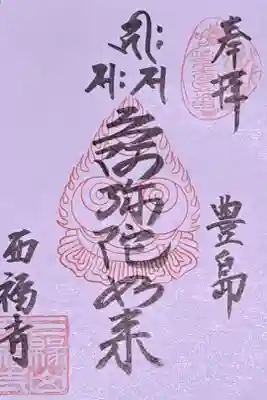 奉拝
豊島
阿弥陀如来
西福寺